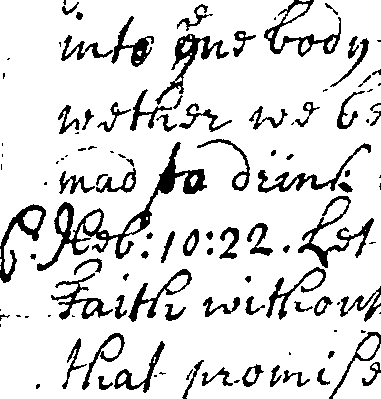 into one body
wether we be
mad to drink
6. Heb: 10:22. Let
Faith without
that promise